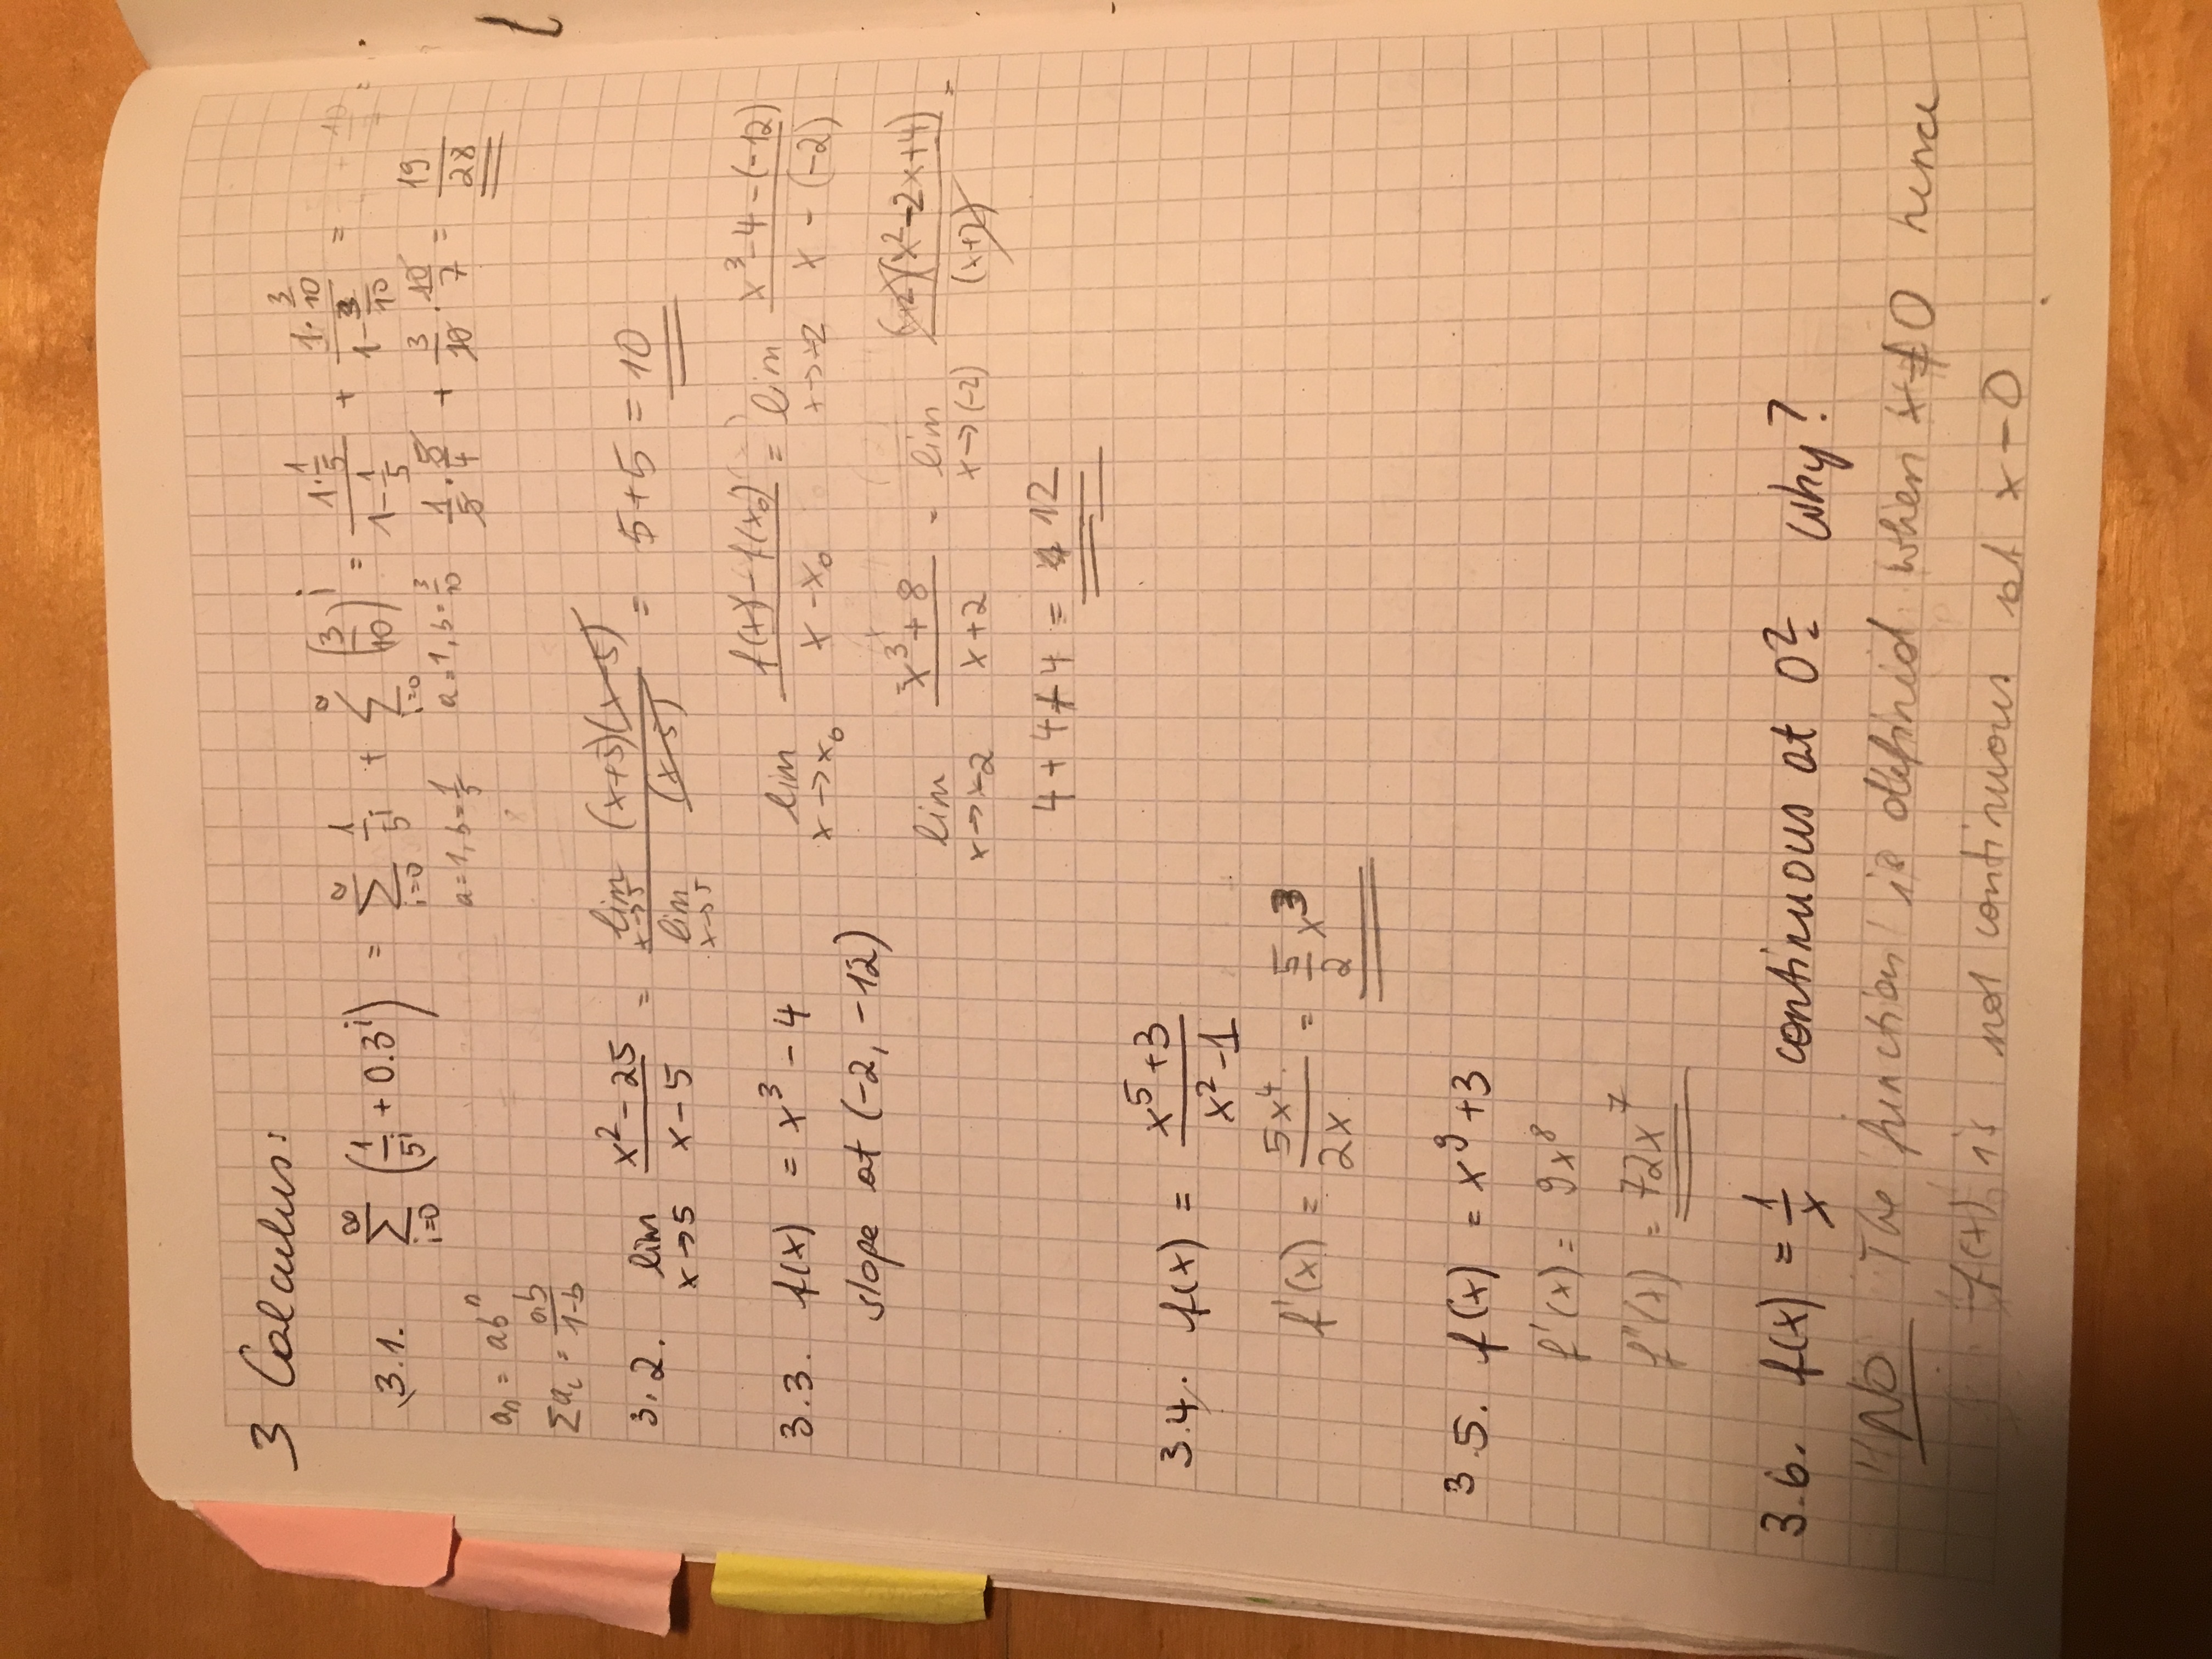 3 Calculus:
3.1. ∞∑i=0 (1/5^i + 0.3^i) = ∞∑i=0 1/5^i + ∞∑i=0 (3/10)^i = (1·1/5)/(1-1/5) + (1·3/10)/(1-3/10) =
a=1, b=1/5 a=1, b=3/10 1/5·5/4 + 3/10·10/7 = 19/28
a_n = ab^n
∑a_i = ab/(1-b)
3.2. lim x→5 (x²-25)/(x-5) = lim x→5 (x+5)(x-5) / lim x→5 (x-5) = 5+5 = 10
3.3. f(x) = x³-4 lim x→x₀ (f(x)-f(x₀))/(x-x₀) = lim x→-2 (x³-4-(-12))/(x-(-2))
slope at (-2, -12)
lim x→-2 (x³+8)/(x+2) = lim x→(-2) (x+2)(x²-2x+4)/(x+2) =
4+4+4 = 12
3.4. f(x) = (x⁵+3)/(x²-1)
f'(x) = 5x⁴/2x = 5/2 x³
3.5. f(x) = x⁹+3
f'(x) = 9x⁸
f''(x) = 72x⁷
3.6. f(x) = 1/x continuous at 0? Why?
NO The function is defined when x≠0 hence
f(x) is not continuous at x=0